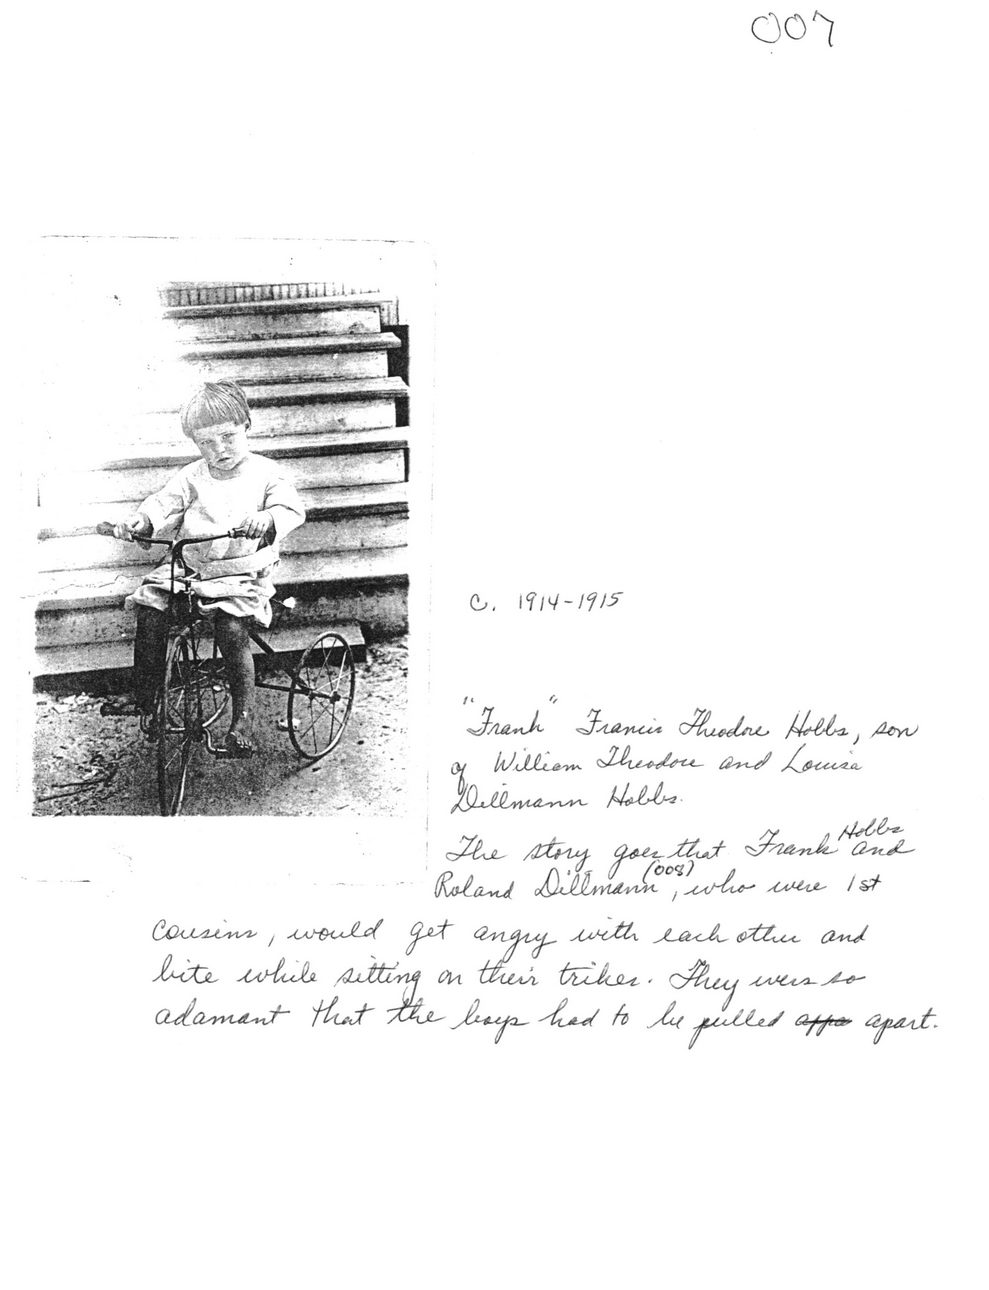 007
c. 1914-1915
"Frank" Francis Theodore Hobbs, son
of William Theodore and Louisa
Dillmann Hobbs.
The story goes that Frank Hobbs and
Roland Dillmann (008), who were 1st
cousins, would get angry with each other and
bite while sitting on their trikes. They were so
adamant that the boys had to be pulled appa apart.